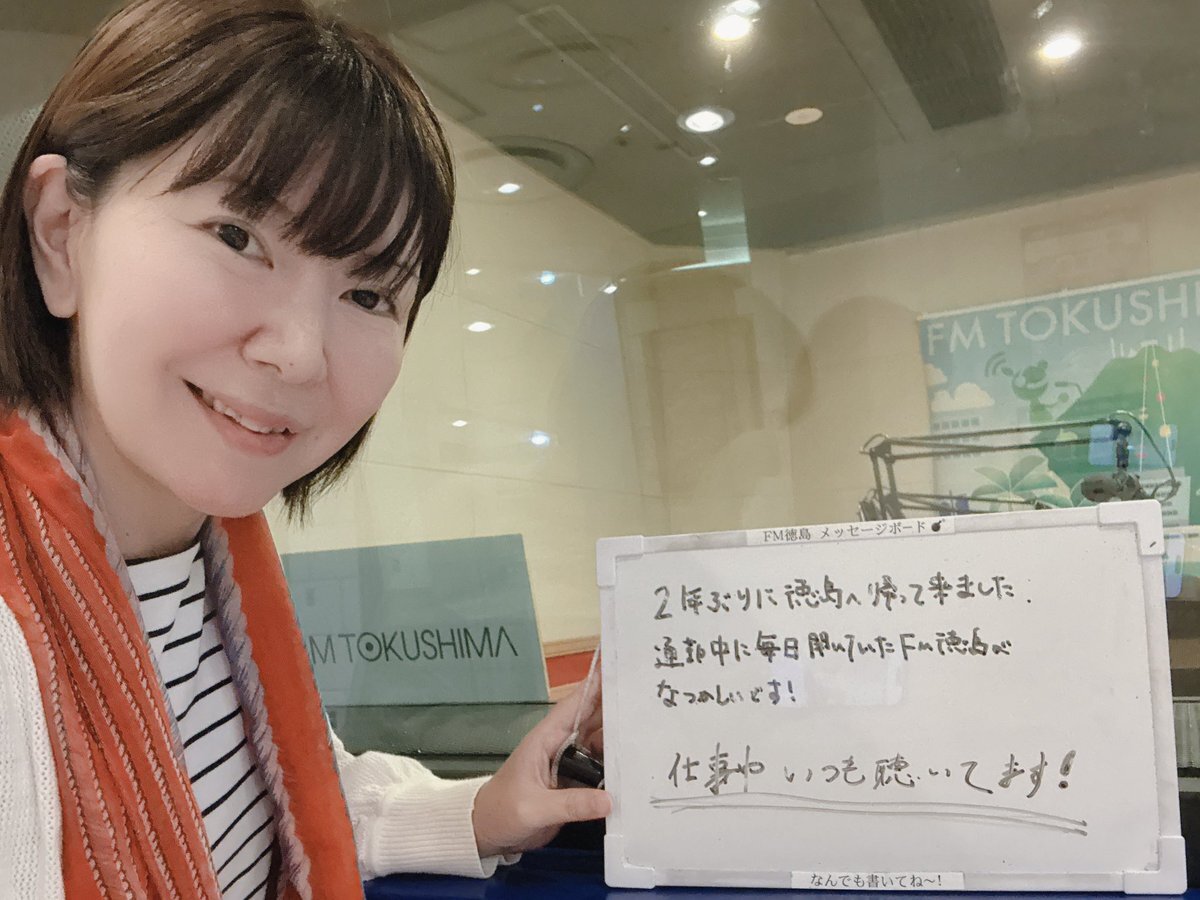 FM TOKUSHI
FM TOKUSHIMA
FM徳島 メッセージボード
2年ぶりに徳島へ帰って来ました.
通勤中に毎日聞いていたFm徳島が
なつかしいです!
仕事中 いつも聴いてます!
なんでも書いてね〜!